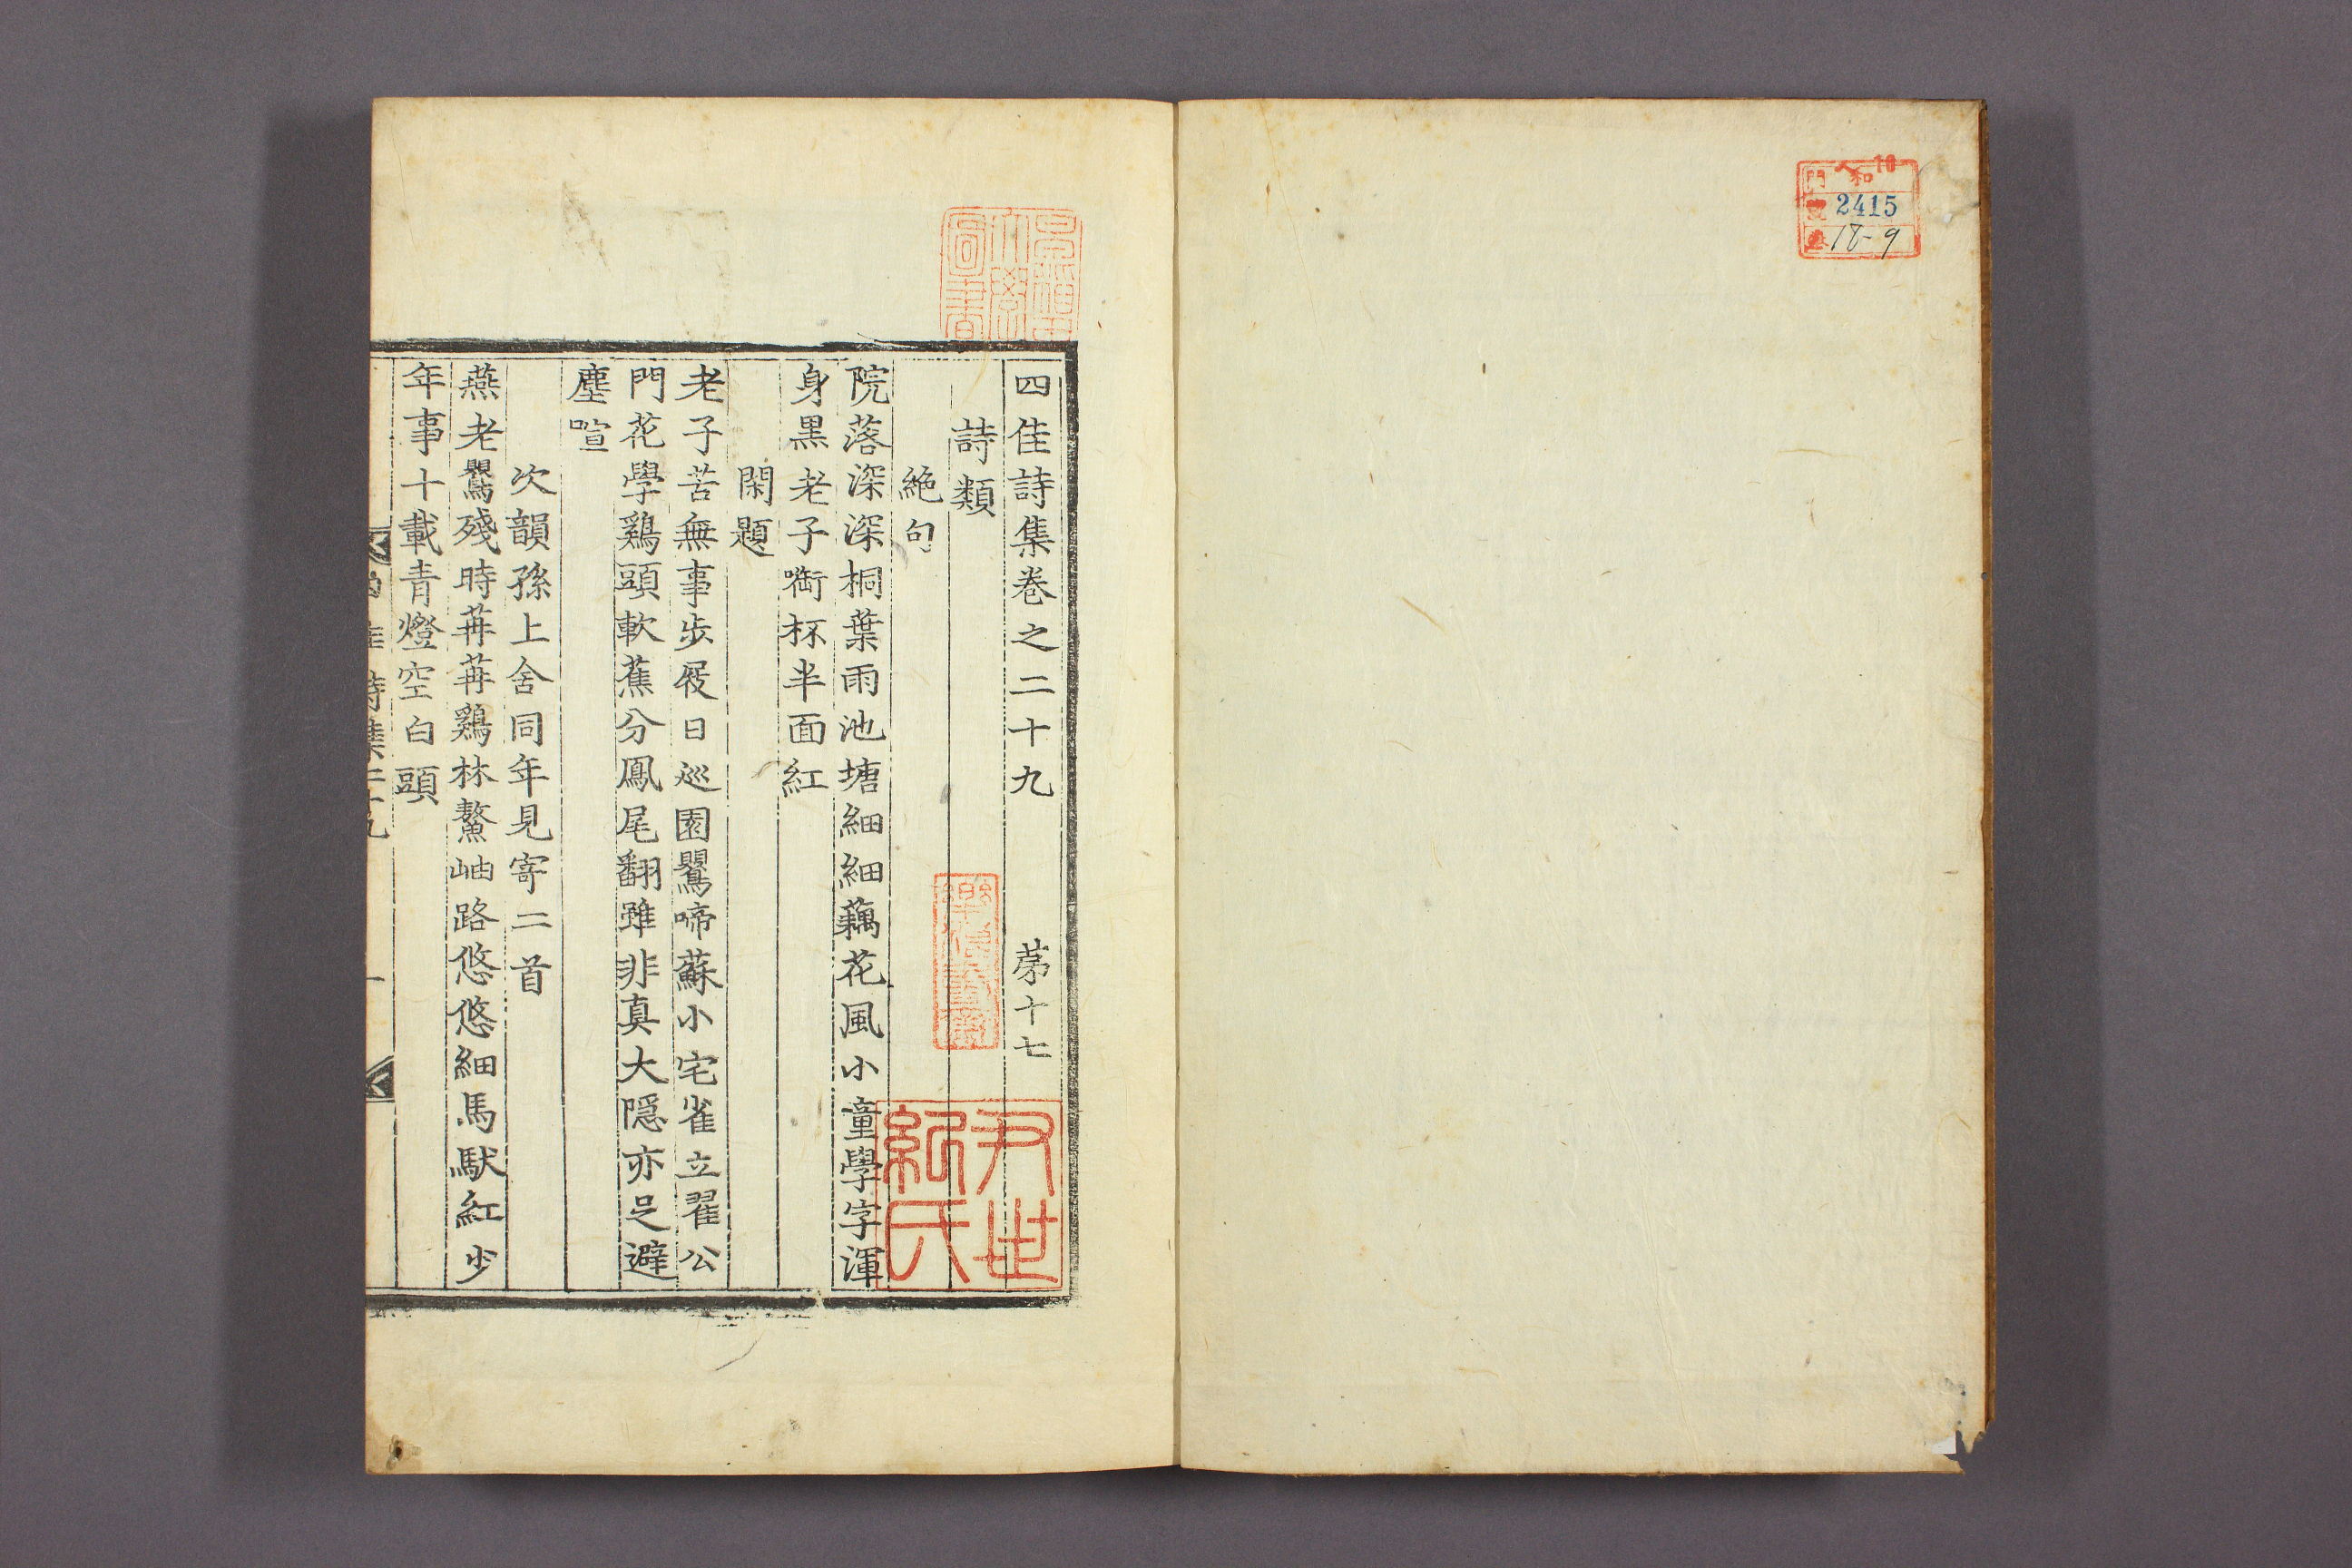 人和
10
門
2415
18-9
四佳詩集卷之二十九 苐十七
詩類
絶句
院落深深桐葉雨池塘細細藕花風小童學字渾
身黒老子㗸杯半面紅
閑題
老子苦無事步屐日巡園鸎啼蘇小宅雀立翟公
門花學鷄頭軟蕉分鳳尾翻雖非真大隠亦足避
塵喧
次韻孫上舍同年見寄二首
燕老鸎殘時苒苒鷄林鰲岫路悠悠細馬馱紅少
年事十載青燈空白頭
詩集二十九 一
尹世紀氏